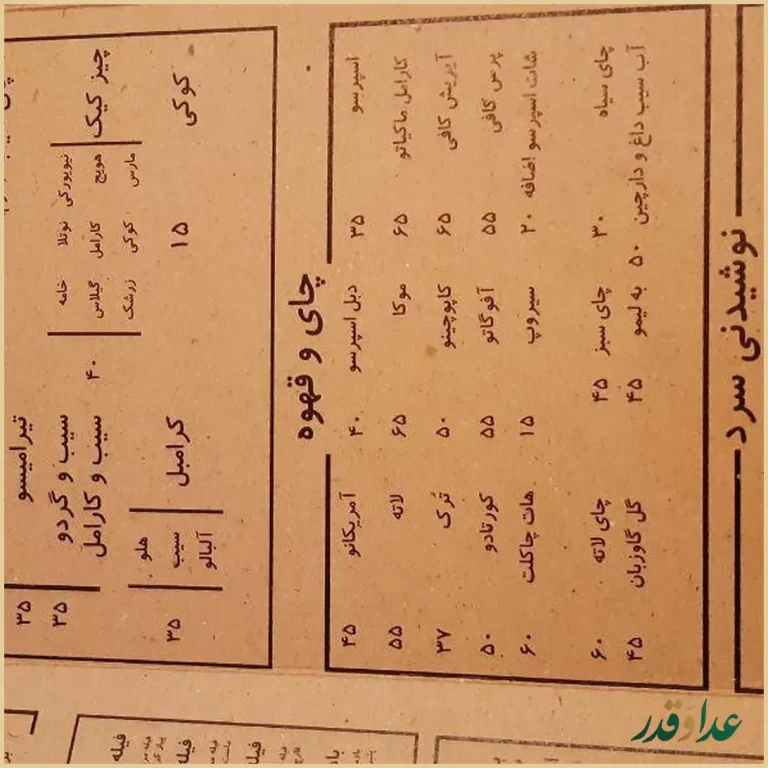 تیرامیسو ۳۵
چیز کیک
نیویورکی نوتلا خامه
هویج کارامل گیلاس
مارس کوکی زرشک
۴۰
سیب و گردو
سیب و کارامل
۳۵
کوکی ۱۵
کرامبل
هلو
سیب
آلبالو
۳۵
چای و قهوه
اسپرسو ۳۵ دبل اسپرسو ۴۰ آمریکانو ۴۵
کارامل ماکیاتو ۶۵ موکا ۶۵ لاته ۵۵
آیریش کافی ۶۵ کاپوچینو ۵۰ تُرک ۳۷
پرس کافی ۵۵ آفوگاتو ۵۵ کورتادو ۵۰
شات اسپرسو اضافه ۲۰ سیروپ ۱۵ هات چاکلت ۶۰
چای سیاه ۳۰ چای سبز ۴۵ چای لاته ۶۰
آب سیب داغ و دارچین ۵۰ به لیمو ۴۵ گل گاوزبان ۴۵
نوشیدنی سرد
فیله
فیله
فیله
عدل و قدر